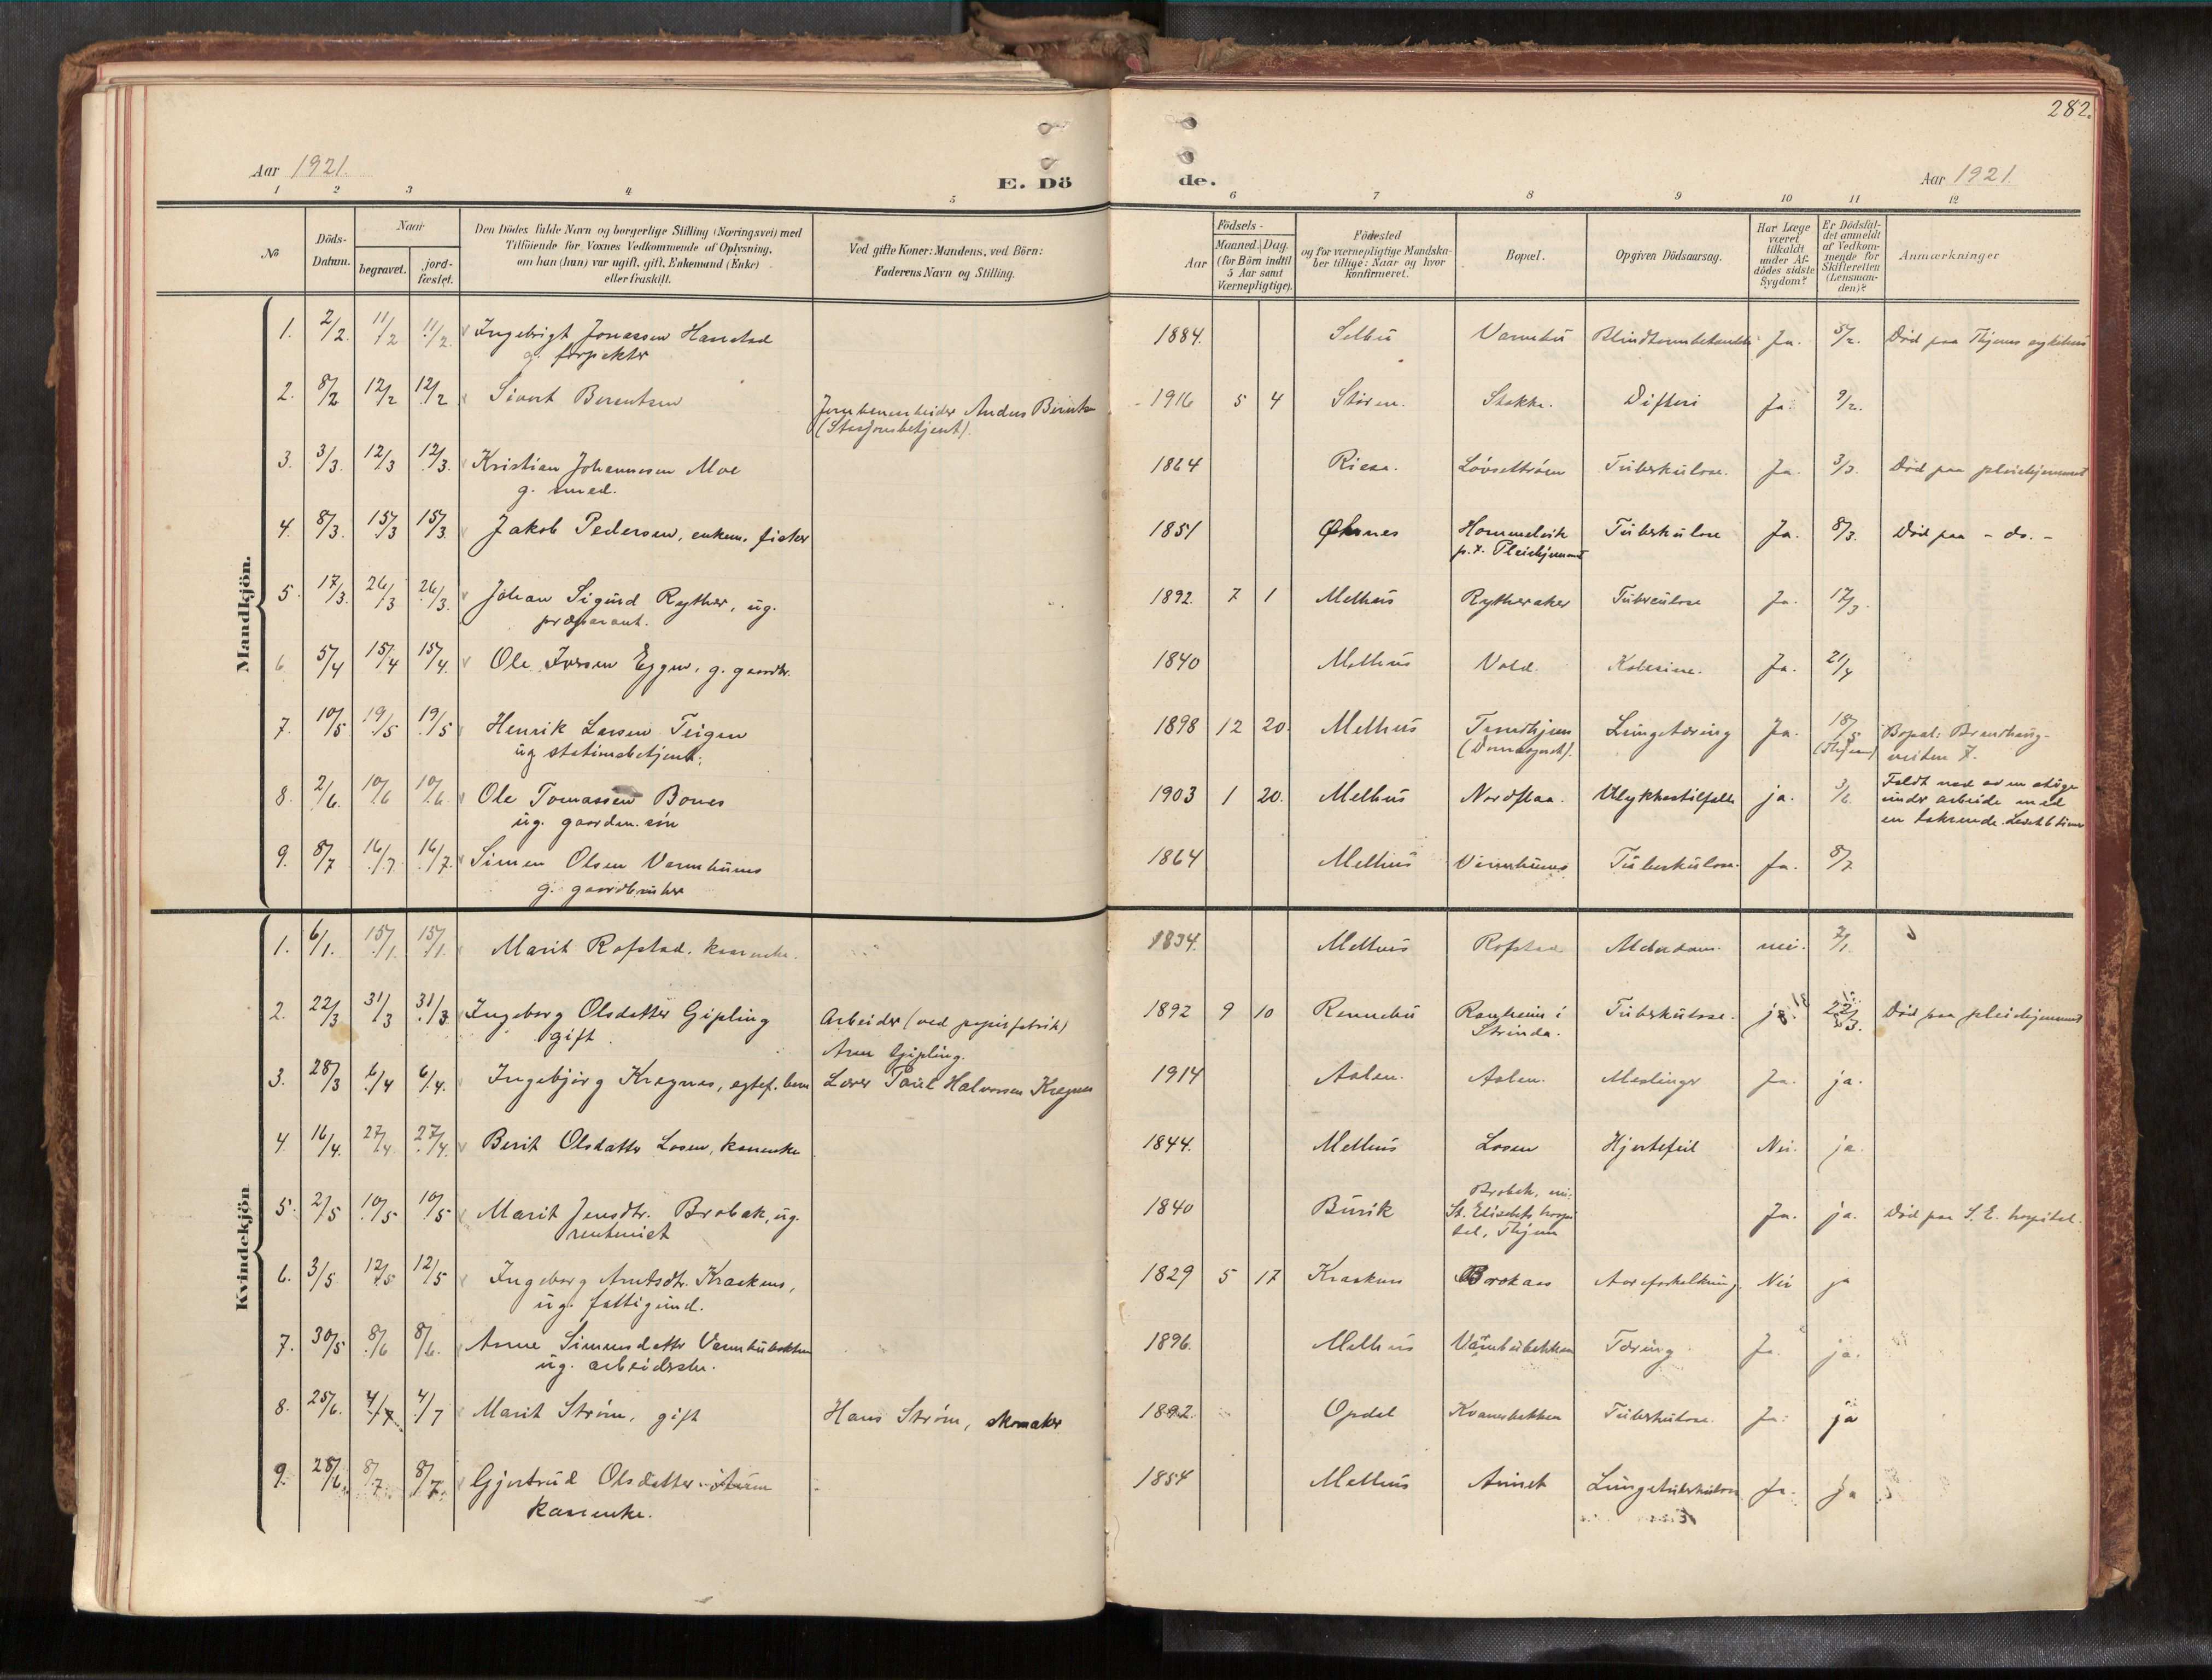 282.
Aar 1921.
E. Dö
de.
Aar 1921
1 2 3 4 5 6 7 8 9 10 11 12
No
Döds-Datum.
Naar
begravet.
jord-fæstet.
Den Dödes fulde Navn og borgerlige Stilling (Næringsvei) med
Tilföiende for Voxnes Vedkommende af Oplysning,
om han (hun) var ugift, gift, Enkemand (Enke)
eller fraskilt.
Ved gifte Koner: Mandens, ved Börn:
Faderens Navn og Stilling.
Födsels-
Aar
Maaned. Dag.
(for Börn indtil
5 Aar samt
Værnepligtige).
Födested
og for værnepligtige Mandska-
ber tillige: Naar og hvor
konfirmeret.
Bopæl.
Opgiven Dödsaarsag.
Har Læge
været
tilkaldt
under Af-
dödes sidste
Sygdom?
Er Dödsfal-
det anmeldt
af Vedkom-
mende for
Skifteretten
(Lensman-
den)?
Anmærkninger
Mandkjön.
1. 2/2. 11/2 11/2. Ingebrigt Jonassen Hanstad 1884. Selbu Varmbu Ja. 5/2. Död paa Thjems sykehus
g.
2. 8/2 12/2 12/2 Sivert Berentsen Jernbanearbeider Anders Berntsen 1916 5 4 Støren. Stokke. Difteri Ja. 9/2.
(Stasjonsbetjent).
3. 3/3. 12/3 12/3. Kristian Johannesen Moe 1864 Rissa. Løvsettrøen Tüberkülose. Ja. 3/3. Död paa pleiehjemmet
g. smed.
4. 8/3. 15/3 15/3. Jakob Pedersen, enkem. fisker 1851 Øksnes Hommelvik Tüberkülose Ja. 8/3. Död paa - do. -
p.t. Pleiehjemmet
5. 17/3. 26/3 26/3. Johan Sigurd Ryther, ug. 1892. 7 1 Melhus Rytheraker Tüberculose Ja. 17/3.
præparant.
6 5/4 15/4 15/4. Ole Iversen Eggen, g. gaardbr. 1840 Melhus Vold. Ja. 21/4
7. 10/5 19/5 19/5 Henrik Larsen Teigen 1898 12 20. Melhus Trondhjem Lungetæring Ja. 18/5 Bopæl: Brandhaug-
ug stationsbetjent. (Thjem) veiten 7.
8. 2/6. 10/6 10/6. Ole Tomassen Bones 1903 1 20. Melhus Nordflaa. Ulykkestilfælle ja. 3/6. Faldt ned av en stige
ug. gaardm. søn under arbeide med
en takrende. Levet 6 timer
9. 8/7 16/7. 16/7. Simen Olsen Varmbuens 1864 Melhus Tüberkülose. Ja. 8/7
g. gaardbruker
Kvindekjön
1. 6/1. 15/1 15/1. Marit Rofstad. kaarenke. 1834. Melhus Rofstad Alderdom. nei. 7/1.
2. 22/3 31/3 31/3 Ingeborg Olsdatter Gipling Arbeider (ved papirfabrik) 1892 9 10 Rennebu Ranheim i Tüberkülose. ja. 22/3. Död paa pleiehjemmet
gift Arne Gipling. Strinda.
3. 28/3 6/4 6/4. Ingebjørg Kregnes, egtef. barn Lærer Paul Halvorsen Kregnes 1914 Aalen. Aalen. Meslinger Ja. ja.
4 16/4. 27/4. 27/4. Berit Olsdatter Losen, kaarenke 1844. Melhus Losen Hjertefeil Nei. ja.
5. 2/5 10/5 10/5 Marit Jensdtr. Brobak, ug. 1840 Burik Brobak, Ja. ja. Død paa S. E. hospital.
rentenist St. Elisabets hospi
tal, Thjem
6. 3/5. 12/5 12/5 Ingeborg Arntsdtr. Kraakens, 1829 5 17 Aareforkalkning Nei ja
ug. fattigund.
7. 30/5 8/6 8/6. Anne Simensdatter Varmbubekken 1896. Melhus Varmbubekken Tæring Ja. ja.
ug. arbeidsche.
8. 25/6. 4/7 4/7 Marit Strøm, gift Hans Strøm, skomaker 1892. Opdal Kvamsbekken Tüberkülose. Ja. ja
9. 28/6. 8/7 8/7. Gjertrud Olsdatter 1854 Melhus Lungetüberkülose Ja. ja
kaarenke.